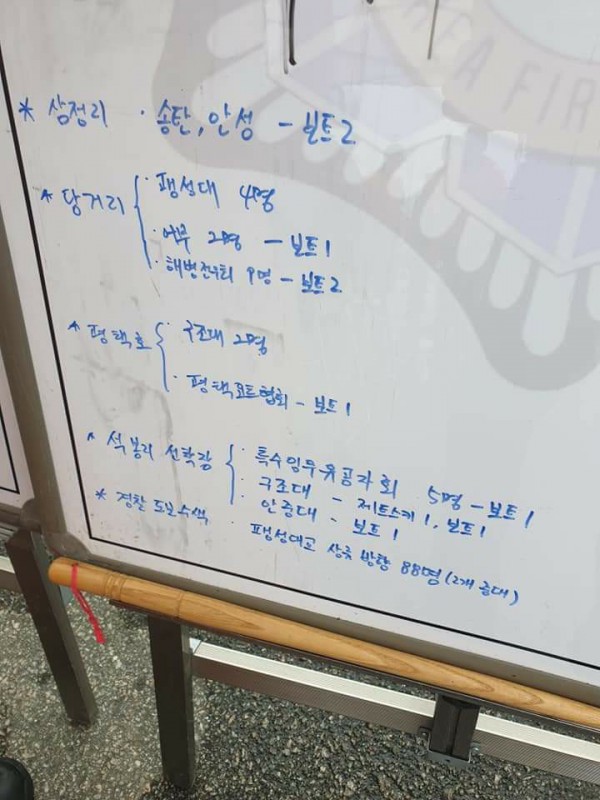 FA FIR
* 삼정리 · 송탄, 안성 - 보트 2
* 당거리 · 팽성대 4명
· 어부 2명 - 보트 1
· 해병전우회 9명 - 보트 2
* 평택호 · 구조대 2명
· 평택요트협회 - 보트 1
* 석봉리 선착장 · 특수임무유공자회 5명 - 보트 1
· 구조대 - 제트스키 1, 보트 1
· 안중대 - 보트 1
* 경찰 도보수색 · 팽성대교 상류 방향 88명 (2개 중대)